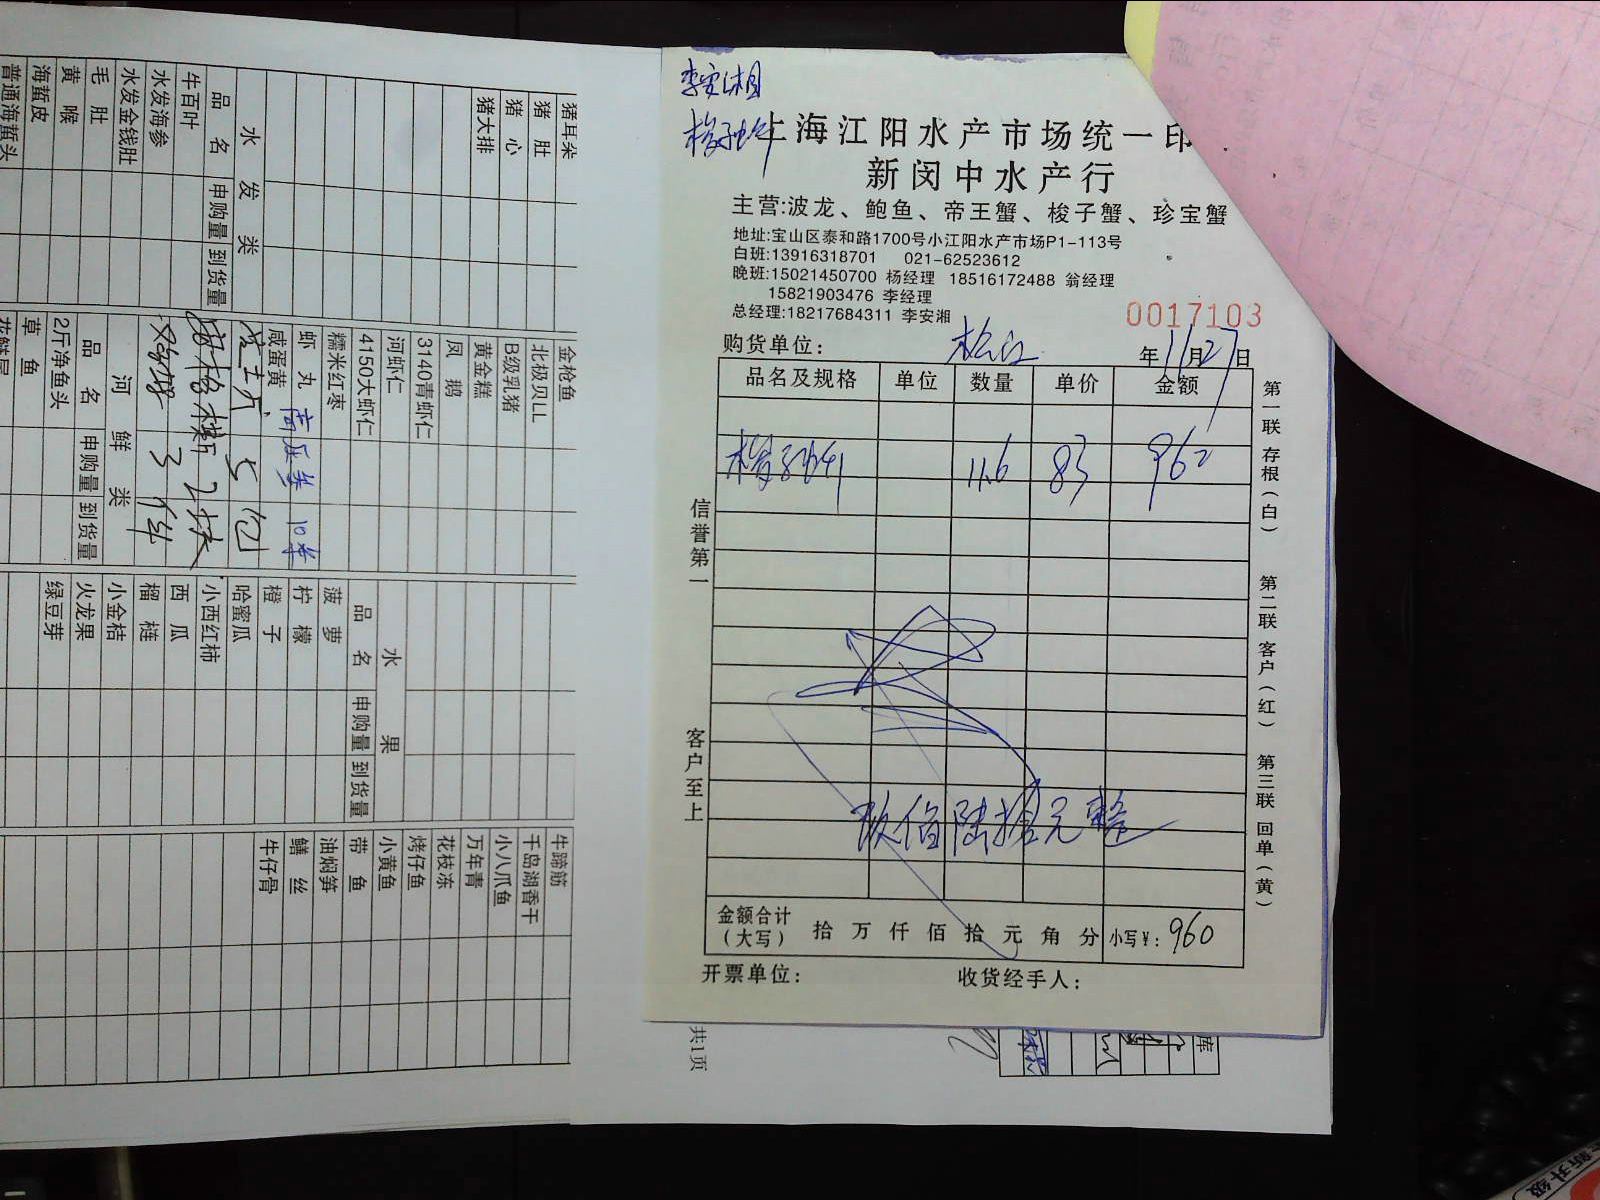 李安湘
梭子蟹
上海江阳水产市场统一印
新闵中水产行
主营:波龙、鲍鱼、帝王蟹、梭子蟹、珍宝蟹
地址:宝山区泰和路1700号小江阳水产市场P1-113号
白班:13916318701 021-62523612
晚班:15021450700 杨经理 18516172488 翁经理
15821903476 李经理
总经理:18217684311 李安湘
0017103
购货单位: 松江 年11月27日
品名及规格 单位 数量 单价 金额
梭子蟹 11.6 83 962
玖佰陆拾元整
金额合计(大写) 拾 万 仟 佰 拾 元 角 分 小写¥: 960
开票单位: 收货经手人:
信誉第一
客户至上
第一联 存根(白) 第二联 客户(红) 第三联 回单(黄)
共1页
库
猪耳朵
猪肚
猪心
猪大排
水发类
品名 申购量 到货量
牛百叶
水发海参
水发金钱肚
毛肚
黄喉
海蜇皮
普通海蜇头
金枪鱼
北极贝LL
B级乳猪
黄金糕
凤鹅
3140青虾仁
河虾仁
4150大虾仁
糯米红枣
虾丸
咸蛋黄
5包
2块
3件
河鲜类
品名 申购量 到货量
2斤净鱼头
草鱼
花鲢尾
水果
品名 申购量 到货量
菠萝
柠檬
橙子
哈蜜瓜
小西红柿
西瓜
榴梿
小金桔
火龙果
绿豆芽
牛蹄筋
千岛湖香干
小八爪鱼
万年青
花枝冻
烤仔鱼
小黄鱼
带鱼
油焖笋
鳝丝
牛仔骨